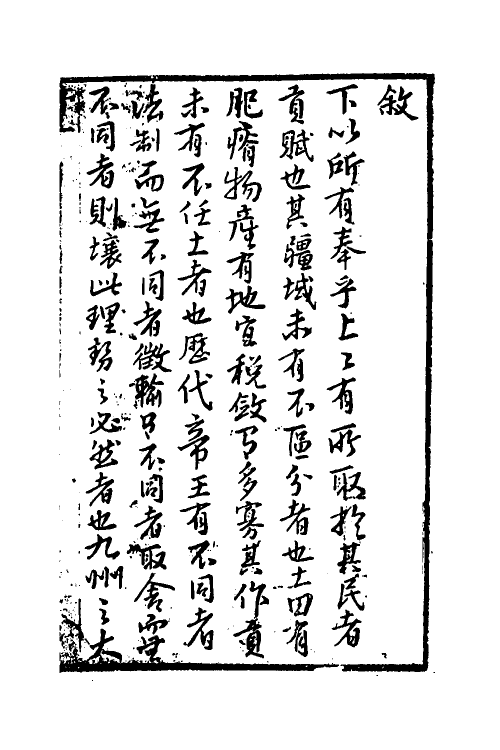 敘
下以所有奉乎上上有所取於其民者
貢賦也其疆域未有不區分者也土田有
肥瘠物產有地宜稅斂有多寡其作貢
未有不任土者也歷代帝王有不同者
法制而無不同者徵輸有不同者取舍而無
不同者則壤此理勢之必然者也九州之大